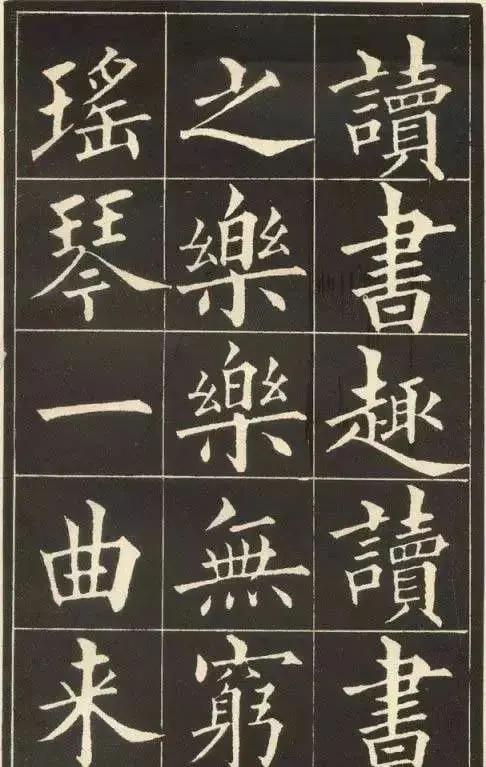 讀書趣讀書
之樂樂無窮
瑶琴一曲来